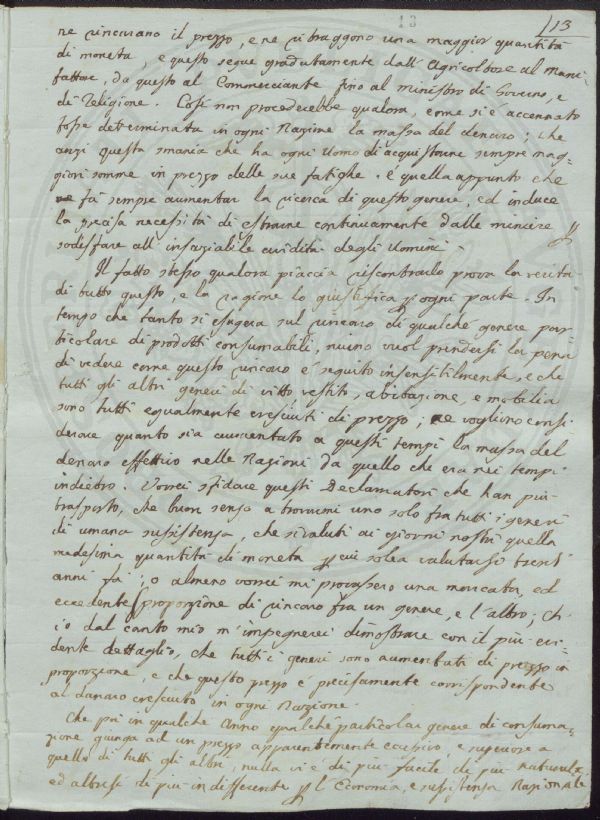 13
13
ne rincarano il prezzo, e ne ritraggono una maggior quantità
di moneta, e questo segue gradatamente dall'Agricoltore al Mani-
fattore, da questo al Commerciante fino al ministro di Governo, e
di Religione. Così non procederebbe qualora, come si è accennato
fosse determinata in ogni Nazione la massa del denaro; che
anzi questa smania che ha ogni Uomo di acquistarne sempre mag-
giori somme in prezzo delle sue fatighe è quella appunto che
fà sempre aumentar la ricerca di questo genere, ed induce
la precisa necessità di estrarne continuamente dalle miniere
sodisfare all'insaziabile avidità degli Uomini.
Il fatto stesso qualora piaccia riscontrarlo prova la verità
di tutto questo, e la ragione lo giustifica ogni parte. In
tempo che tanto si esagera sul rincaro di qualche genere par-
ticolare di prodotti consumabili, niuno vuol prendersi la pena
di vedere come questo rincaro è seguito insensibilmente, e che
tutti gli altri generi di vitto vestito, abitazione, e mobilia
sono tutti egualmente cresciuti di prezzo; ne vogliono consi-
derare quanto sia aumentato a questi tempi la massa del
denaro effettivo nelle Nazioni da quello che era nei tempi
indietro. Vorrei sfidare questi Declamatori che han più
trasporto, che buon senso a trovarmi uno solo fra tutti i generi
di umana sussistenza, che si valuti ai giorni nostri quella
medesima quantità di moneta cui solea valutarsi trent'
anni fà; o almeno vorrei mi provassero una marcata, ed
eccedente sproporzione di rincaro fra un genere, e l'altro; Ch'
io dal canto mio m'impegnerei dimostrare con il più evi-
dente dettaglio, che tutti i generi sono aumentati di prezzo in
proporzione, e che questo prezzo è precisamente corrispondente
al danaro cresciuto in ogni Nazione.
Che poi in qualche Anno qualche particolar genere di consuma-
zione giunga ad un prezzo apparentemente eccessivo, e superiore a
quello di tutti gli altri, nulla vi è di più facile di più naturale,
ed altresì di più indifferente l'Economia, e sussistenza Nazionale